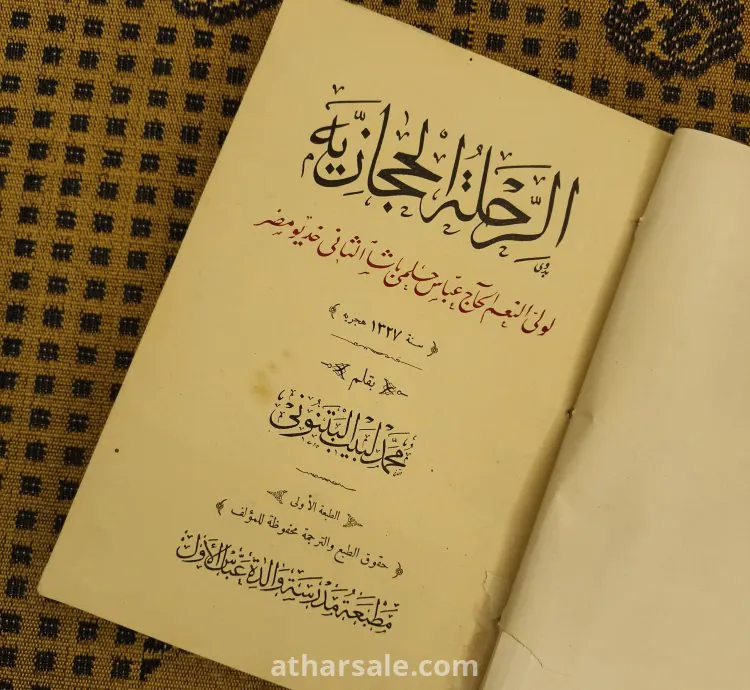 الرِّحلة الحجازيّة
لولي النعم الحاج عبّاس حلمي باشا الثاني خديو مصر
﴿ سنة ١٣٢٧ هجريه ﴾
بقلم
محمّد لبيب البتنوني
الطبعة الأولى
﴿ حقوق الطبع والترجمة محفوظة للمؤلف ﴾
مطبعة مدرسة والدة عبّاس الأول
atharsale.com